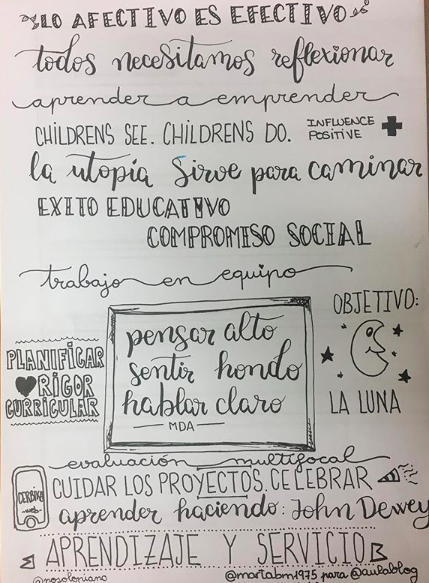 LO AFECTIVO ES EFECTIVO
todos necesitamos reflexionar
aprender a emprender
CHILDRENS SEE. CHILDRENS DO. INFLUENCE POSITIVE +
la utopía Sirve para caminar
EXITO EDUCATIVO
COMPROMISO SOCIAL
trabajo en equipo
OBJETIVO:
LA LUNA
pensar alto
sentir hondo
hablar claro
MDA
PLANIFICAR
RIGOR
CURRICULAR
evaluación multifocal
CUIDAR LOS PROYECTOS. CELEBRAR
aprender haciendo: John Dewey
APRENDIZAJE Y SERVICIO
@nosoloniano
@mariabm1975 para @aulablog